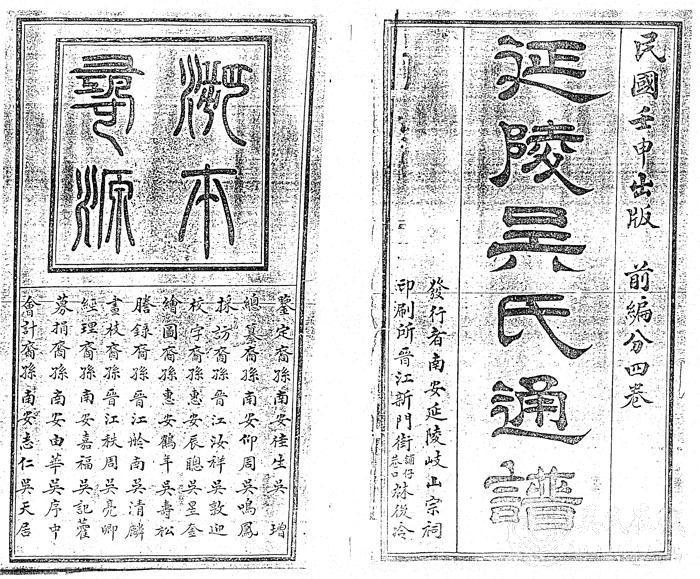 民國壬申出版 前編分四卷
延陵吳氏通譜
發行者南安延陵岐山宗祠
印刷所晉江新門街鋪仔巷口蘇後冷
溯本
尋源
鑒定裔孫南安桂生吳 增
總纂裔孫南安仰周吳鳴鳳
採訪裔孫晉江汝祥吳敦迎
校字裔孫惠安辰聰吳星奎
繪圖裔孫惠安鶴年吳壽松
謄錄裔孫晉江南吳清麟
畫校裔孫晉江秩周吳亮卿
經理裔孫南安嘉福吳記藿
募捐裔孫南安由華吳序中
會計裔孫南安志仁吳天居